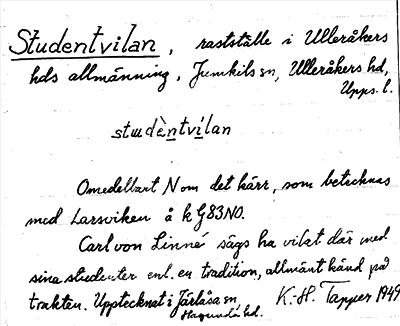 Studentvilan, rastställe i Ulleråkers
hds allmänning, Jumkils sn, Ulleråkers hd,
Upps. l.
studèntvilan
Omedelbart N om det kärr, som betecknas
med Larsviken å k G83NO.
Carl von Linné sägs ha vilat där med
sina studenter enl. en tradition, allmänt känd på
trakten. Upptecknat i Järlåsa sn
Hagunda hd. K.-H. Tapper 1949